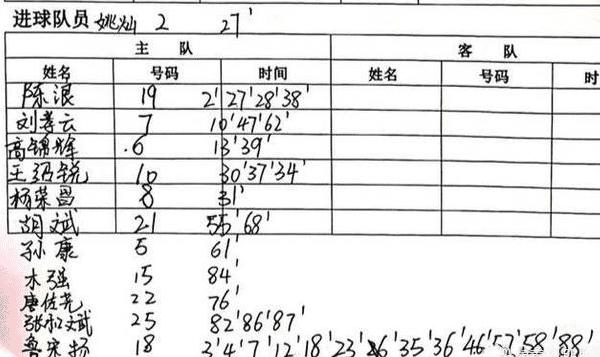 进球队员 姚灿 2 27'
主 队 客 队
姓名 号码 时间 姓名 号码 时
陈浪 19 2'27'28'38'
刘孝云 7 10'47'62'
高锦辉 6 13'39'
王绍锐 10 30'37'34'
杨荣昌 8 31'
胡斌 21 55'68'
孙康 5 61'
木强 15 84'
唐佐尧 22 76'
张松斌 25 82'86'87'
鲁宗扬 18 3'4'7'12'18'23'26'35'36'46'57'58'88'